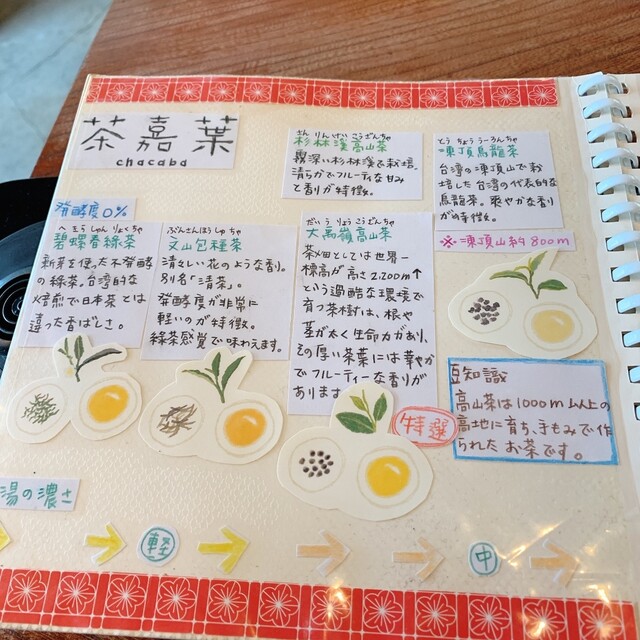 茶嘉葉
chacaba
発酵度0%
へきらしゅんりょくちゃ
碧螺春緑茶
新芽を使った不発酵
の緑茶。台湾的な
焙煎で日本茶とは
違った香ばしさ。
ぶんさんほうしゅちゃ
文山包種茶
清々しい花のような香り。
別名「清茶」。
発酵度が非常に
軽いのが特徴。
緑茶感覚で味わえます。
さんりんけいこうざんちゃ
杉林渓高山茶
霧深い杉林渓で栽培。
清らかでフルーティな甘み
と香りが特徴。
だいうりょうこうざんちゃ
大禹嶺高山茶
茶畑としては世界一
標高が高く2,200m↑
という過酷な環境で
育つ茶樹は、根や
茎が太く生命力があり、
その厚い茶葉には華やか
でフルーティーな香りが
あります
特選
とうちょううーろんちゃ
凍頂烏龍茶
台湾の凍頂山で栽
培した台湾の代表的な
烏龍茶。爽やかな香り
が特徴。
※凍頂山約800m
豆知識
高山茶は1000m以上の
高地に育ち、手もみで作
られたお茶です。
湯の濃さ
軽
中